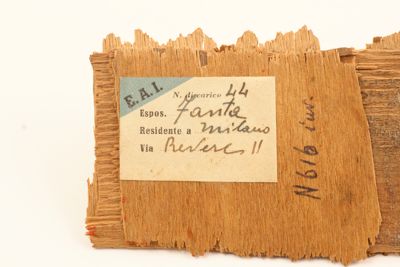 E.A.I.
N. di carico 44
Espos. Fanta
Residente a Milano
Via Revere 11
N 616 inv.